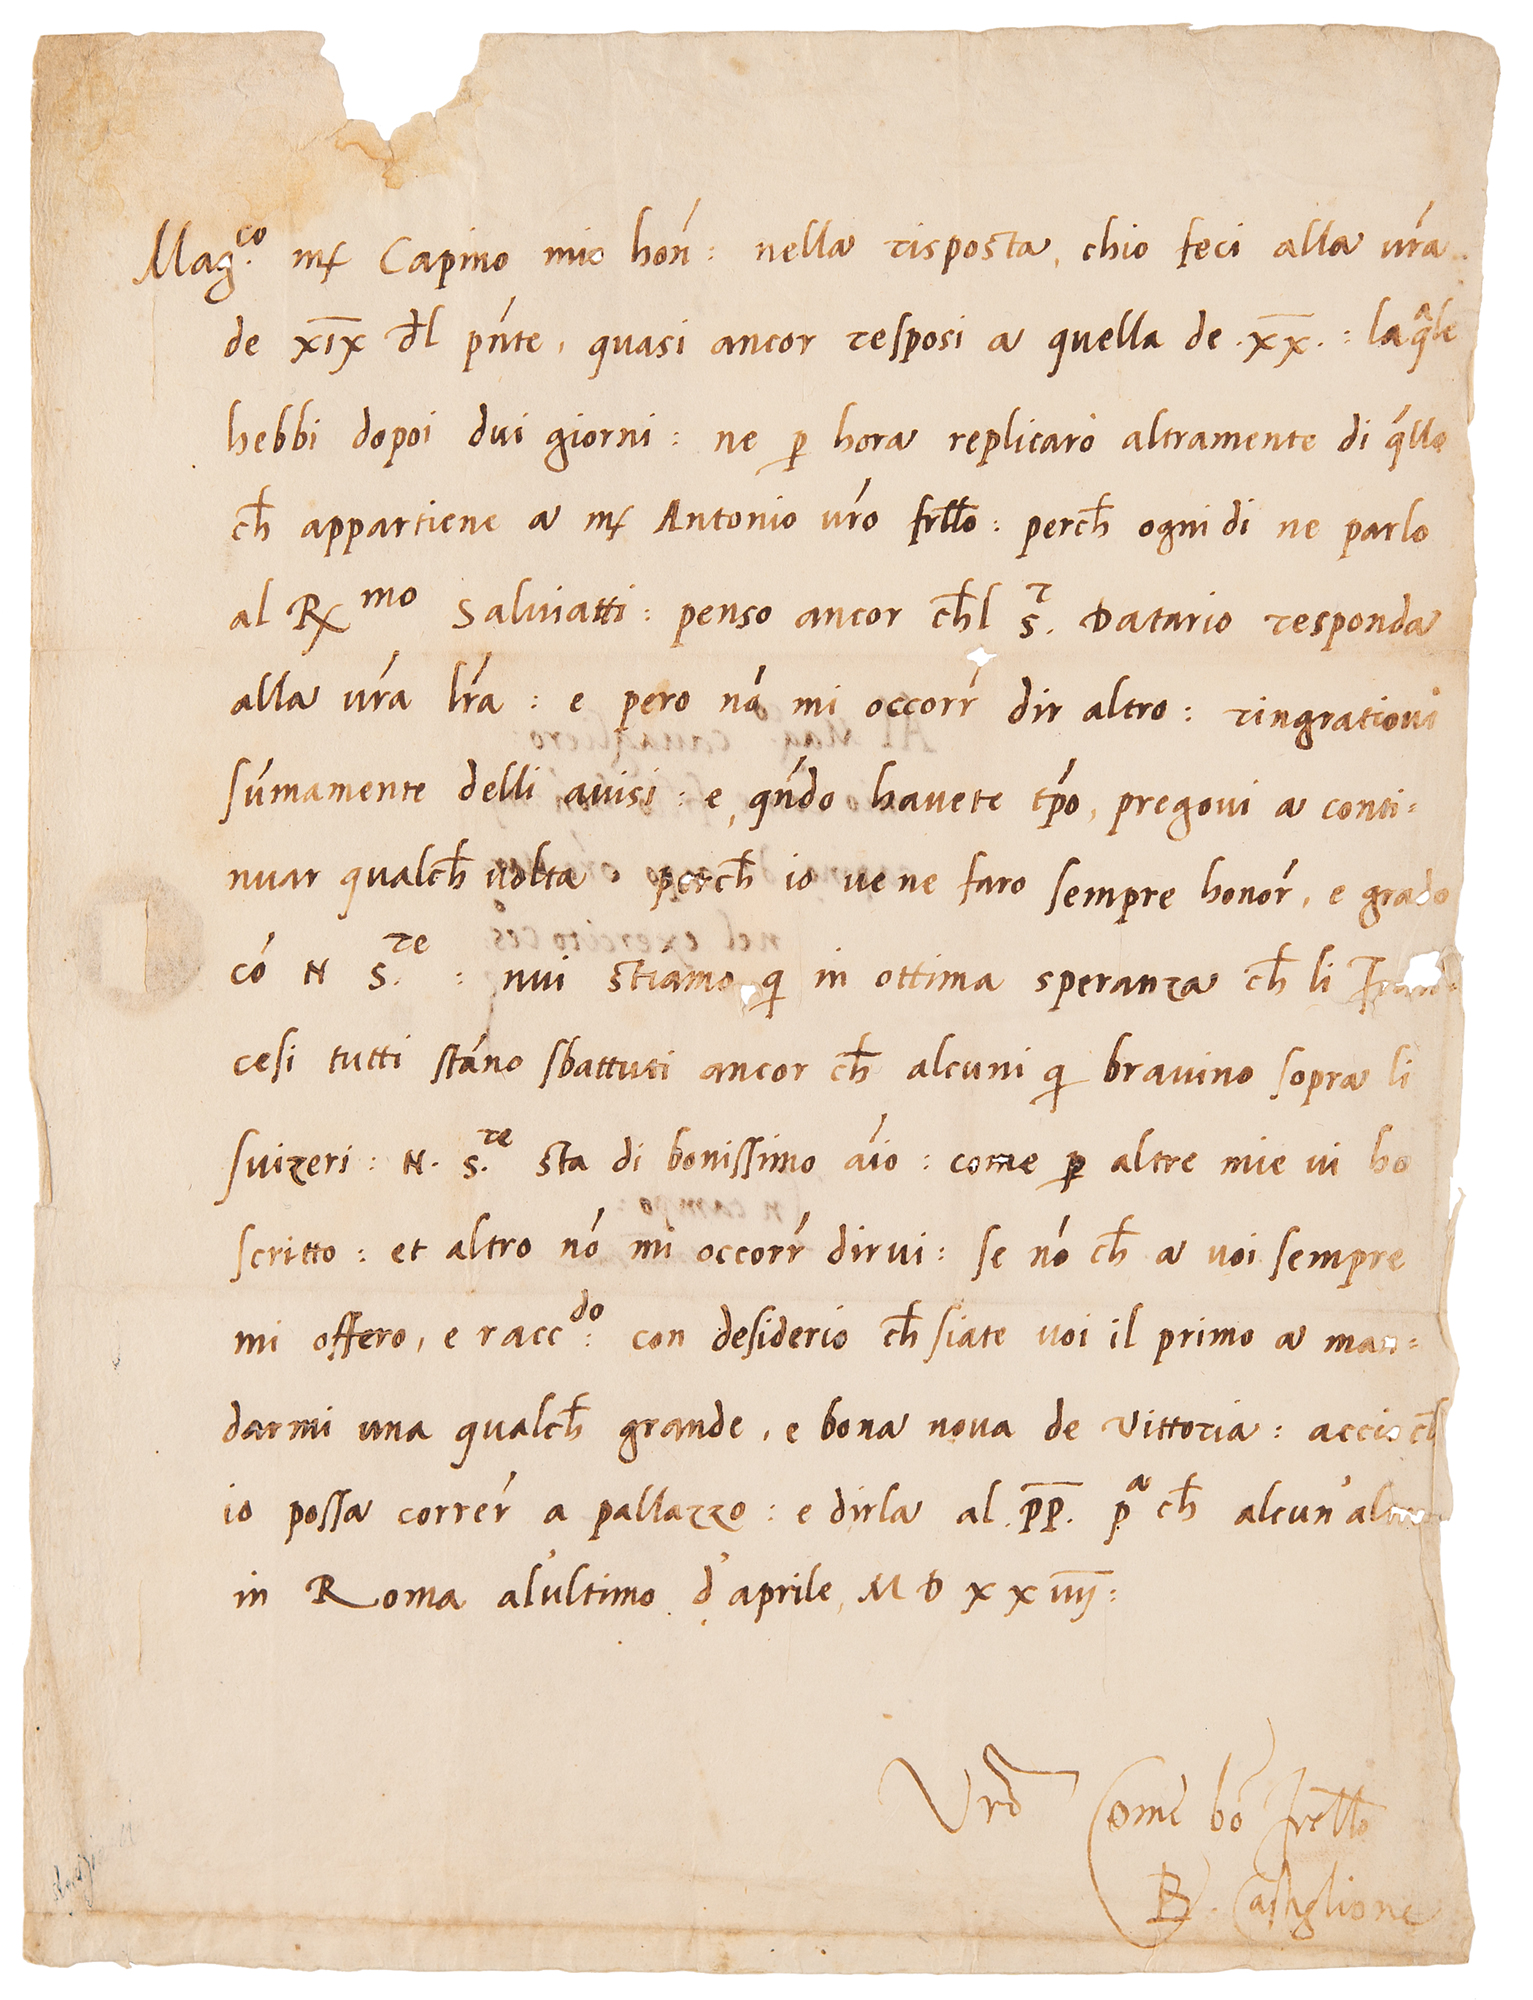 Mag.co mr Capino mio hon: nella risposta, chio feci alla vra
de xix dl pnte, quasi ancor resposi a quella de .xx. : la qale
hebbi dopoi dui giorni: ne p hora replicarò altramente di qllo
ch appartiene a mr Antonio vro frllo: perch ogni di ne parlo
al Rmo Salviatti: penso ancor chl s.r Datario responda
alla vra lra : e pero nó mi occorr dir altro: ringratiovi
súmamente delli avisi: e, qndo havete tpo, pregovi a conti=
nuar qualch volta. perch io ve ne faro sempre honor, e grado
có N S.re : nui stiamo qi in ottima speranza ch li
cesi tutti stáno sbattuti ancor ch alcuni qi bravino sopra li
svizeri: N. S.re sta di bonissimo aío : come p altre mie vi ho
scritto: et altro nó mi occorr dirvi: se nó ch a voi sempre
mi offero, e racc.do: con desiderio ch siate voi il primo a man=
darmi una qualch grande, e bona nova de vittoria: accio ch
io possa correr a pallazzo: e dirla al .pp. pa ch alcun'
in Roma al'ultimo d'aprile, MDxxiiij:
Vro Come bó frello
B. Castiglione